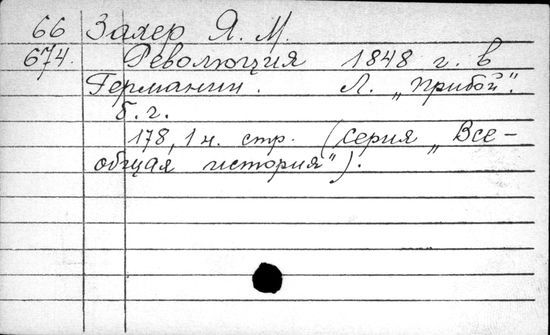 66 Захер Я. М.
674. Революция 1848 г. в
Германии. Л. „Прибой".
б. г.
178, 1 н. стр. (Серия „Все-
общая история").